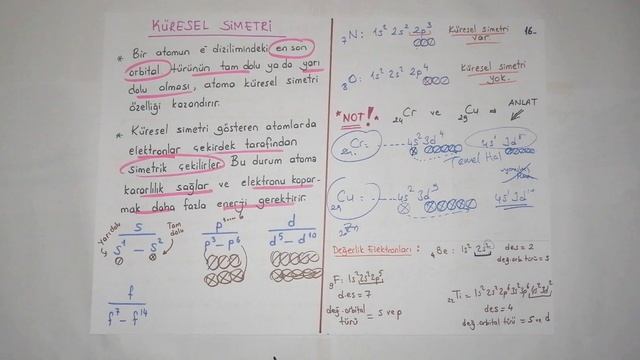 KÜRESEL SİMETRİ
* Bir atomun e⁻ dizilimindeki en son
orbital türünün tam dolu ya da yarı
dolu olması, atoma küresel simetri
özelliği kazandırır.
* Küresel simetri gösteren atomlarda
elektronlar çekirdek tarafından
simetrik çekilirler. Bu durum atoma
kararlılık sağlar ve elektronu kopar-
mak daha fazla enerji gerektirir.
Yarı dolu
Tam dolu
s
s¹ - s²
p
p³ - p⁶
d
d⁵ - d¹⁰
f
f⁷ - f¹⁴
₇N: 1s² 2s² 2p³
Küresel simetri
var
16-
₈O: 1s² 2s² 2p⁴
Küresel simetri
yok.
*NOT!* ₂₄Cr ve ₂₉Cu ⇒ ANLAT
₂₄Cr: 4s² 3d⁴ 4s¹ 3d⁵
Temel Hal
₂₉Cu: 4s² 3d⁹ 4s¹ 3d¹⁰
Değerlik Elektronları: ₄Be: 1s² 2s² des = 2
değ.orb türü = s
₉F: 1s² 2s² 2p⁵
des = 7
değ.orbital
türü = s ve p
₂₂Ti = 1s² 2s² 2p⁶ 3s² 3p⁶ 4s² 3d²
des = 4
değ.orbital türü = s ve d